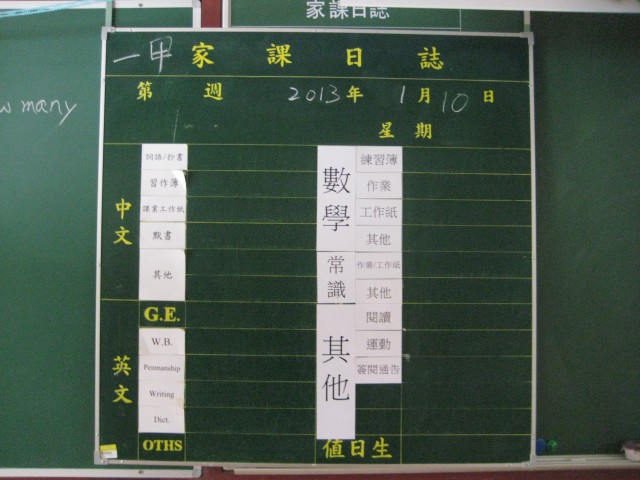 家課日誌
w many
一甲 家課日誌
第 週 2013年 1月10日
星期
中文
詞語/抄書
習作簿
課業工作紙
默書
其他
英文
G.E.
W.B.
Penmanship
Writing
Dict.
OTHS
數學
練習簿
作業
工作紙
其他
常識
作業/工作紙
其他
其他
閱讀
運動
簽閱通告
值日生